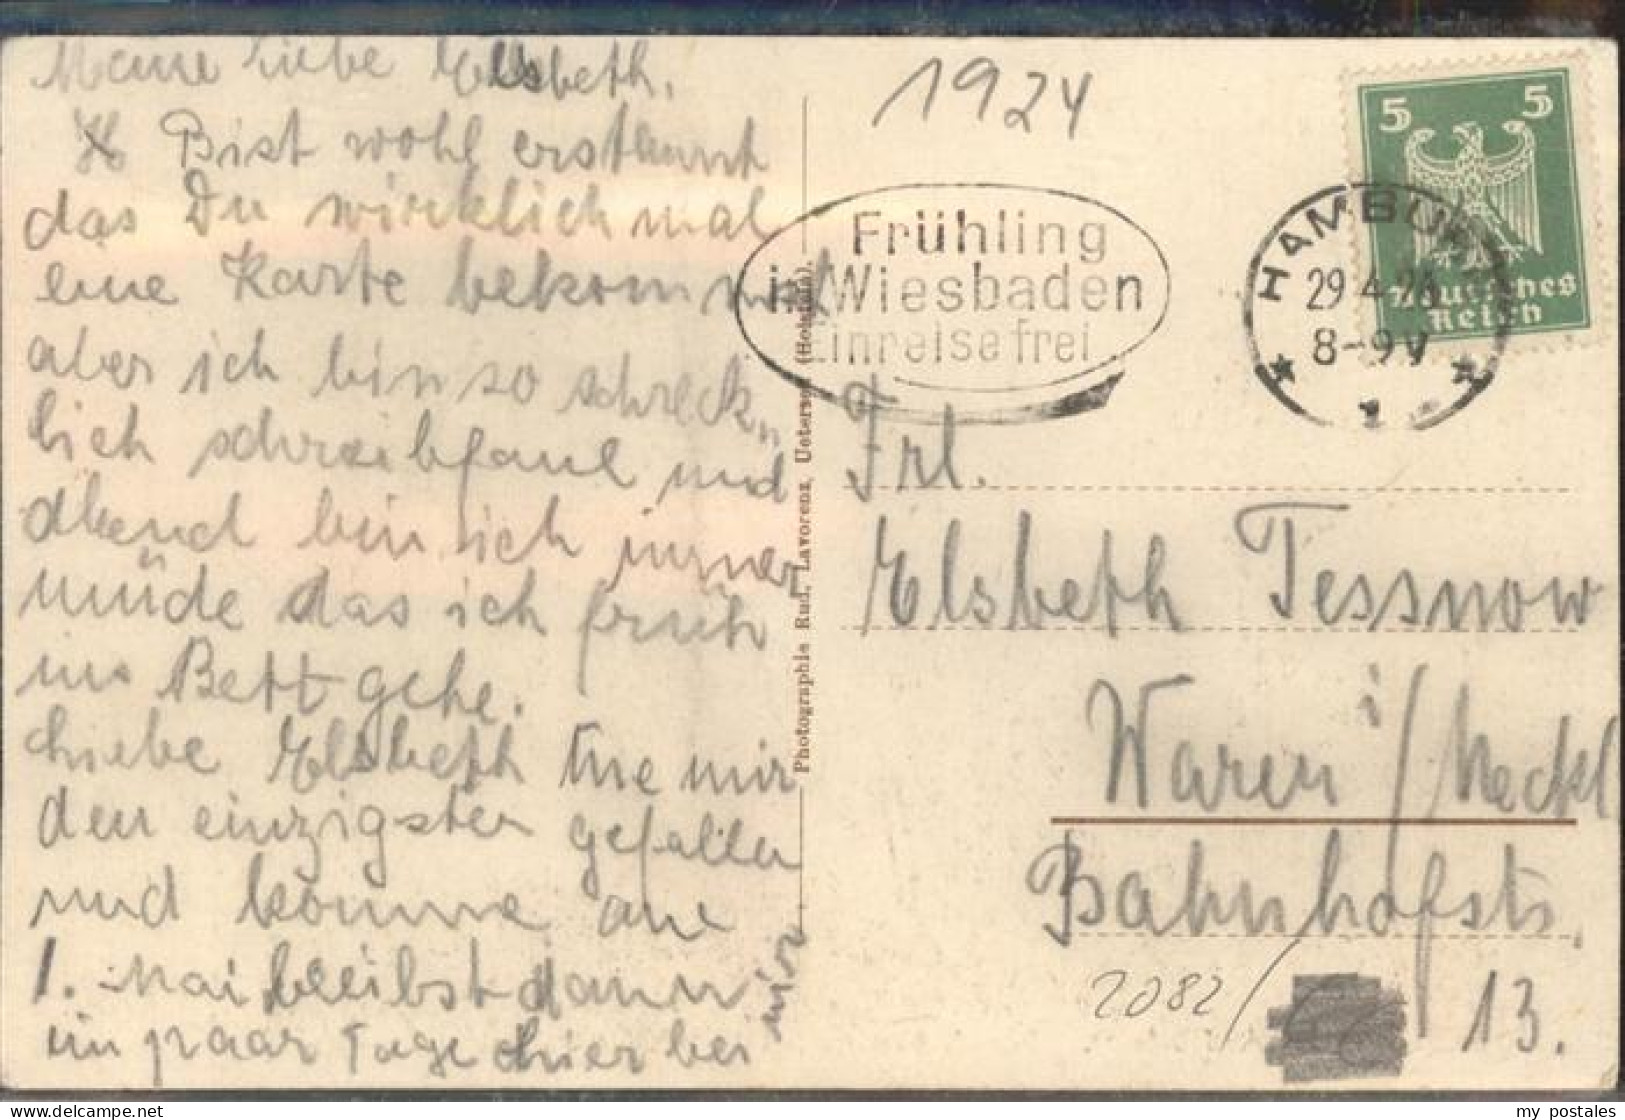 Meine Liebe Elsbeth.
Bist wohl erstaunt
das Du wirklich mal
eine Karte bekommst
aber ich bin so schreck„
lich schreibfaul und
Abend bin ich immer
müde das ich früh
ins Bett gehe.
Liebe Elsbeth tue mir
den einzigsten gefallen
und komme am
1. Mai bleibst dann
ein paar Tage hier bei
mir
Photographie Rud. Lavorenz, Uetersen (Holstein).
1924
Frühling
in Wiesbaden
Einreise frei
HAMBURG
29.4.26
8-9 V
1
5 5
Deutsches
Reich
Frl.
Elsbeth Tessnow
Waren i/Meckl
Bahnhofstr.
13.
2082/
my postales